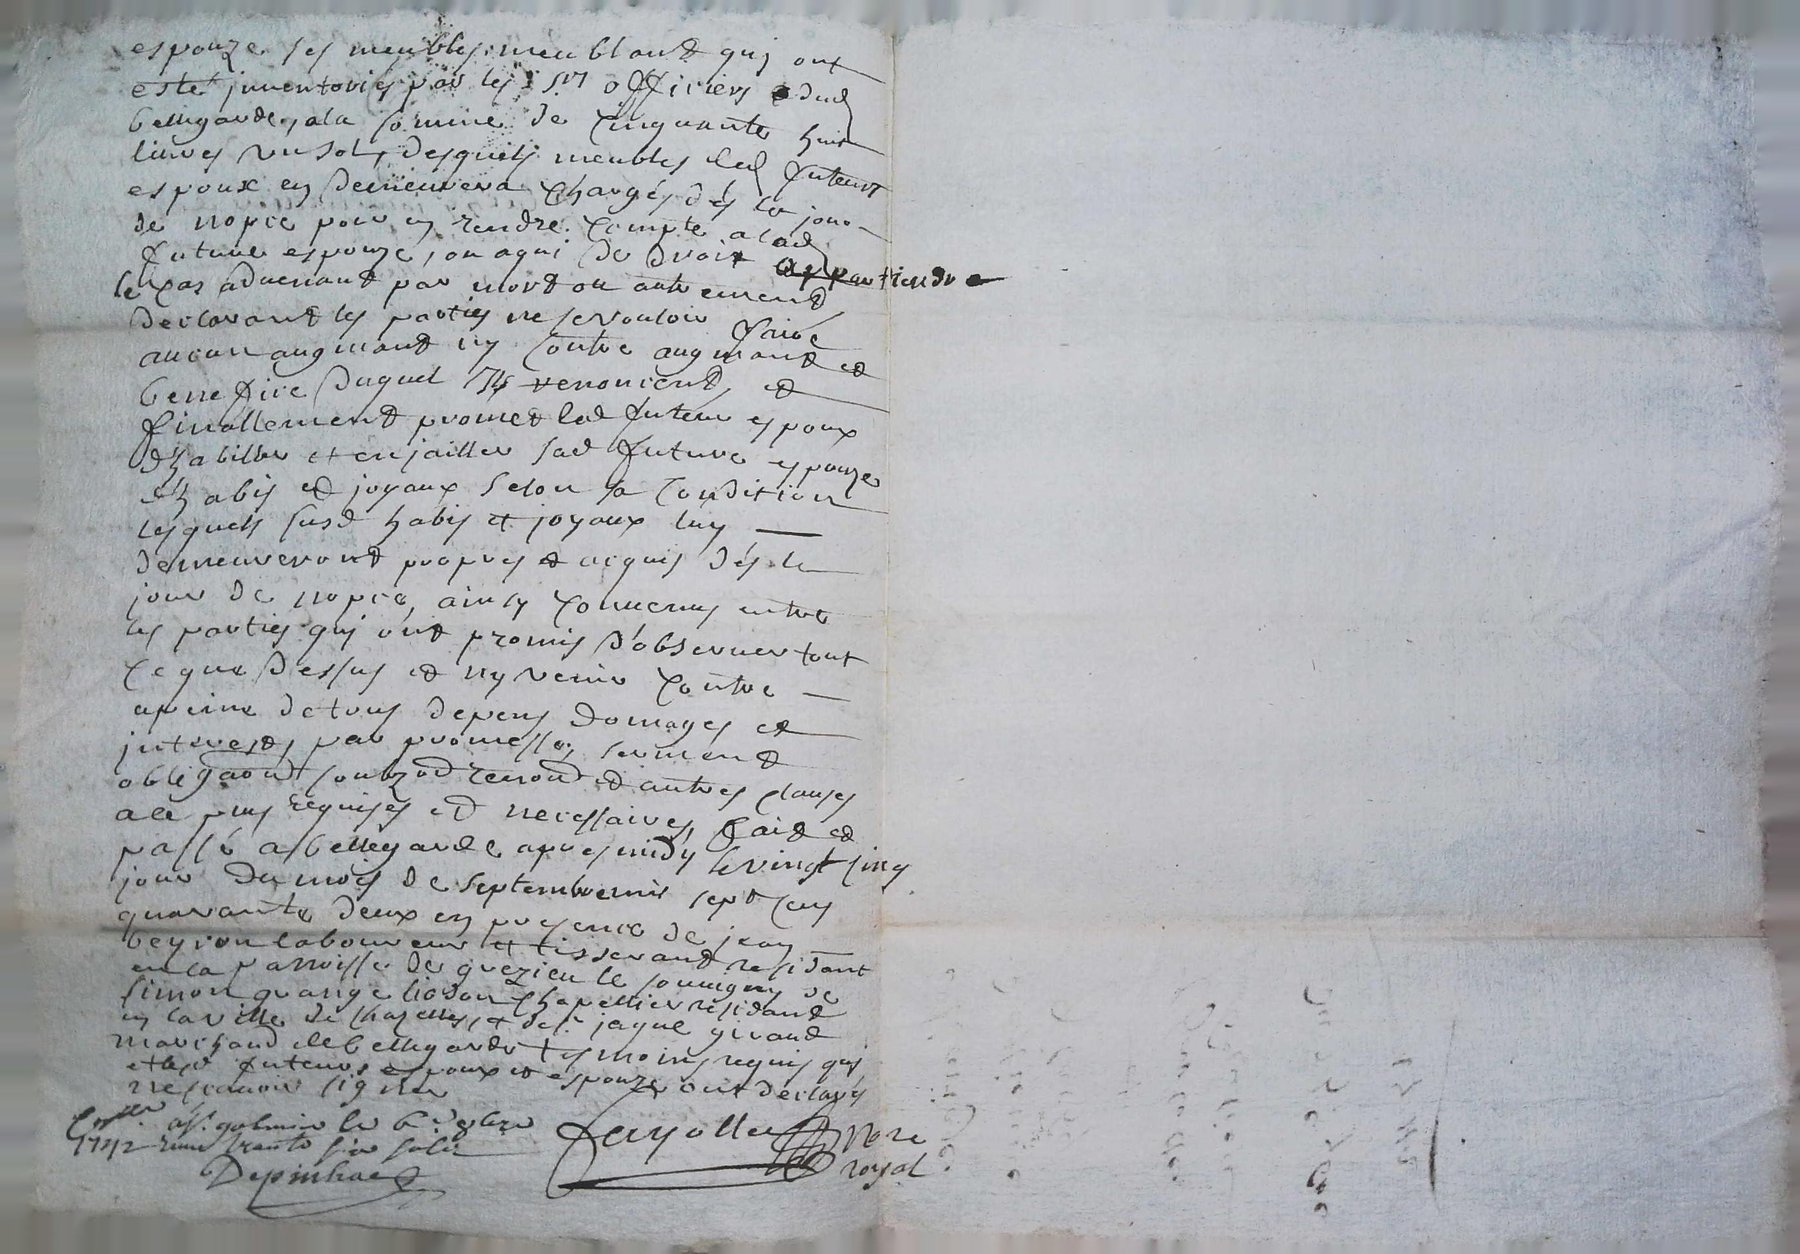 espouze ses meubles meublant quj ont
esté jnventoriés par les Srs officiers dud
bellegarde, ala somme de cinquante huit
livres un sol, desquels meubles led futeur
espoux en demeurera chargés dés le jour
de nopce pour en rendre compte a lad
future espouze, ou aqui de droit appartiendra
le cas advenant par mort ou autrement
declarant les parties ne se vouloir faire
aucun augmant ny contre augmant et
benefice duquel ils renoncent, et
finallement promet led futeur espoux
dhabiller et enjoailler sad future espouze
dhabis et joyaux selon sa condition
lesquels susd habis et joyaux luy
demeureront propres et acquis dés le
jour de nopce, ainsy convenus entre
les parties quj ont promis d'observer tout
ce que dessus et ny venir contre
apeine de tous depens domages et
jnterests, par promesses, serment
obligaons soubzon renon et autres clauses
ace plus requises et necessaires, fait et
passé a bellegarde apres midy le vingt cinq
jour du mois de septembre mil sept cens
quarante deux en presence de jean
beyron laboureur et tisserand residant
en la parroisse de grezieu le de
simon grange chapellier residant
en la ville de chazelles, et de sr jaque giraud
marchand de bellegarde tesmoins requis quj
et led futeurs espoux et espouze ont declarés
ne scavoir signer
Conllé a St galmier le 6e 8bre
1742 reçu trente six sols
Depinhac
Fayolle nore
royal